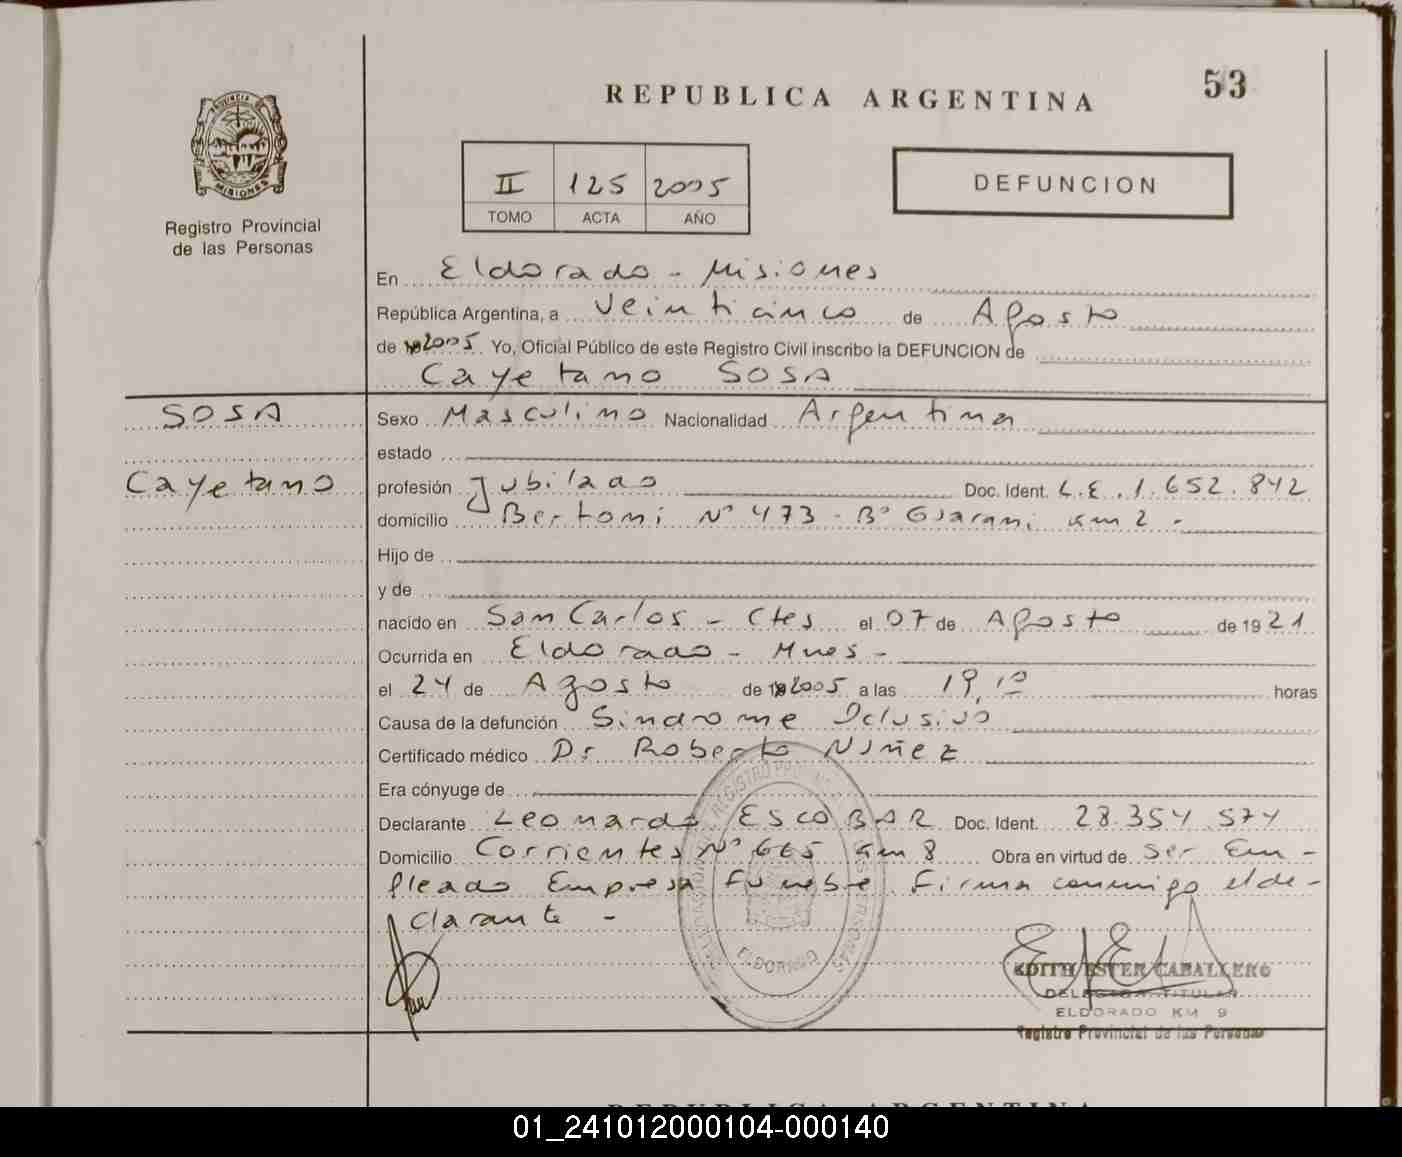 53
REPUBLICA ARGENTINA
PROVINCIA DE
MISIONES
Registro Provincial
de las Personas
II 125 2005
TOMO ACTA AÑO
DEFUNCION
En Eldorado - Misiones
República Argentina, a veinticinco de Agosto
de 2005 Yo, Oficial Público de este Registro Civil inscribo la DEFUNCION de
Cayetano SOSA
SOSA
Cayetano
Sexo Masculino Nacionalidad Argentina
estado
profesión Jubilado Doc. Ident. L.E. 1.652.842
domicilio Bertoni N° 473 - B° Guarani Km 2 -
Hijo de
y de
nacido en San Carlos - Ctes el 07 de Agosto de 1921
Ocurrida en Eldorado - Mnes -
el 24 de Agosto de 2005 a las 19,10 horas
Causa de la defunción Sindrome
Certificado médico Dr Roberto Nuñez
Era cónyuge de
Declarante Leonardo ESCOBAR Doc. Ident. 28.354.574
Domicilio Corrientes N° 665 Km 8 Obra en virtud de ser Em-
pleado Empresa Funebre. Firma conmigo el de-
clarante -
ELDORADO
EDITH ESTER CABALLERO
DELEGADA TITULAR
ELDORADO KM 9
Registro Provincial de las Personas
REPUBLICA ARGENTINA
01_241012000104-000140